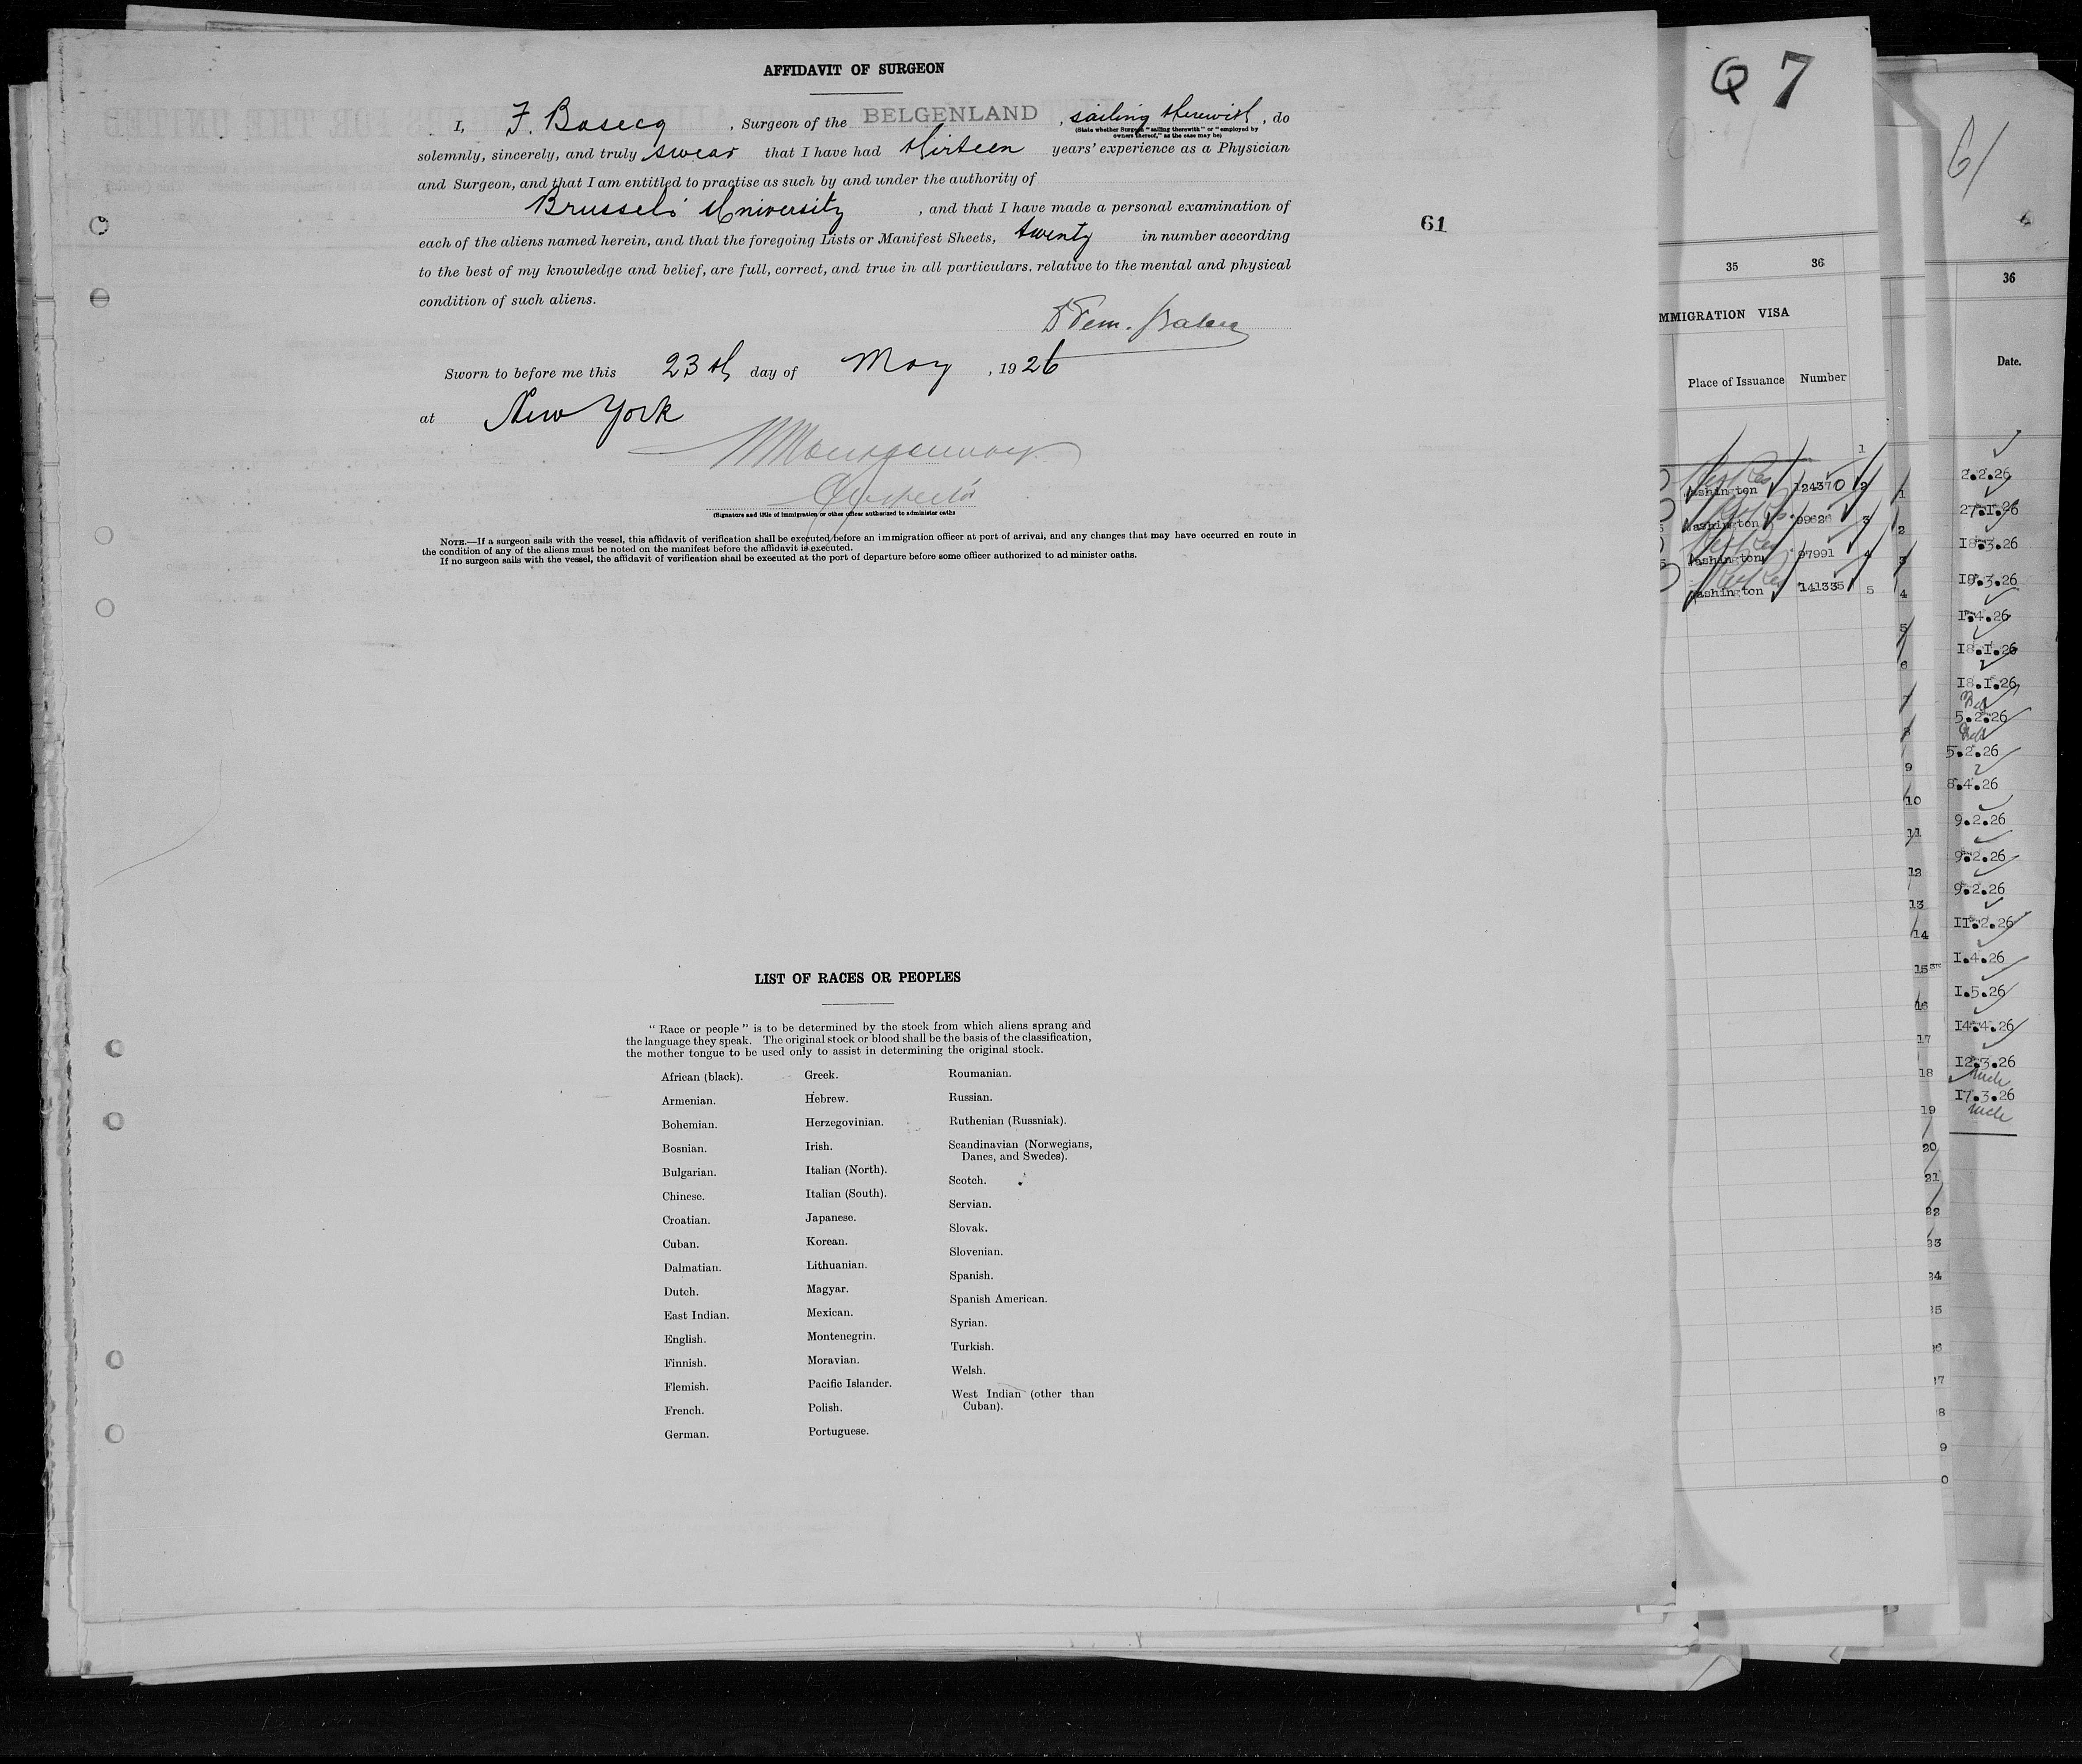 AFFIDAVIT OF SURGEON
I, F. Basecq, Surgeon of the BELGENLAND, sailing therewith, do
(State whether Surgeon "sailing therewith" or "employed by
owners thereof," as the case may be)
solemnly, sincerely, and truly swear that I have had thirteen years' experience as a Physician
and Surgeon, and that I am entitled to practise as such by and under the authority of
Brussels University, and that I have made a personal examination of
each of the aliens named herein, and that the foregoing Lists or Manifest Sheets, twenty in number according
to the best of my knowledge and belief, are full, correct, and true in all particulars. relative to the mental and physical
condition of such aliens.
Sworn to before me this 23th day of May, 1926
at New York
Inspector
(Signature and title of immigration or other officer authorized to administer oaths
NOTE.—If a surgeon sails with the vessel, this affidavit of verification shall be executed before an immigration officer at port of arrival, and any changes that may have occurred en route in
the condition of any of the aliens must be noted on the manifest before the affidavit is executed.
If no surgeon sails with the vessel, the affidavit of verification shall be executed at the port of departure before some officer authorized to ad minister oaths.
61
LIST OF RACES OR PEOPLES
"Race or people" is to be determined by the stock from which aliens sprang and
the language they speak. The original stock or blood shall be the basis of the classification,
the mother tongue to be used only to assist in determining the original stock.
African (black).
Armenian.
Bohemian.
Bosnian.
Bulgarian.
Chinese.
Croatian.
Cuban.
Dalmatian.
Dutch.
East Indian.
English.
Finnish.
Flemish.
French.
German.
Greek.
Hebrew.
Herzegovinian.
Irish.
Italian (North).
Italian (South).
Japanese.
Korean.
Lithuanian.
Magyar.
Mexican.
Montenegrin.
Moravian.
Pacific Islander.
Polish.
Portuguese.
Roumanian.
Russian.
Ruthenian (Russniak).
Scandinavian (Norwegians,
Danes, and Swedes).
Scotch.
Servian.
Slovak.
Slovenian.
Spanish.
Spanish American.
Syrian.
Turkish.
Welsh.
West Indian (other than
Cuban).
Q 7
35 36
MMIGRATION VISA
Place of Issuance Number
1
ashington 124370 2
ashington 99626 3
ashington 97991 4
ashington 141335 5
1
2
3
4
5
6
7
8
9
10
11
12
13
14
15
16
17
18
19
20
21
22
23
24
25
61
36
Date.
2.2.26
27.1.26
18.3.26
19.3.26
1.4.26
18.1.26
18.1.26
5.2.26
5.2.26
8.4.26
9.2.26
9.2.26
9.2.26
11.2.26
1.4.26
1.5.26
14.4.26
12.3.26
17.3.26